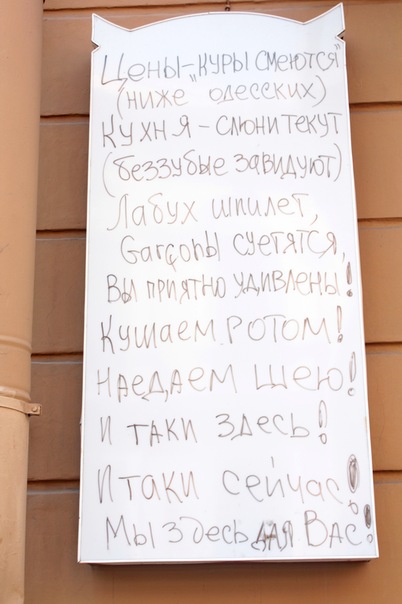 Цены-„куры смеются"
(ниже одесских)
Кухня - слюни текут
(беззубые завидуют)
Лабух шпилет,
Garçonы суетятся,
Вы приятно удивлены!
Кушаем ротом!
Наедаем шею!
И таки здесь!
И таки сейчас!
Мы здесь для Вас!